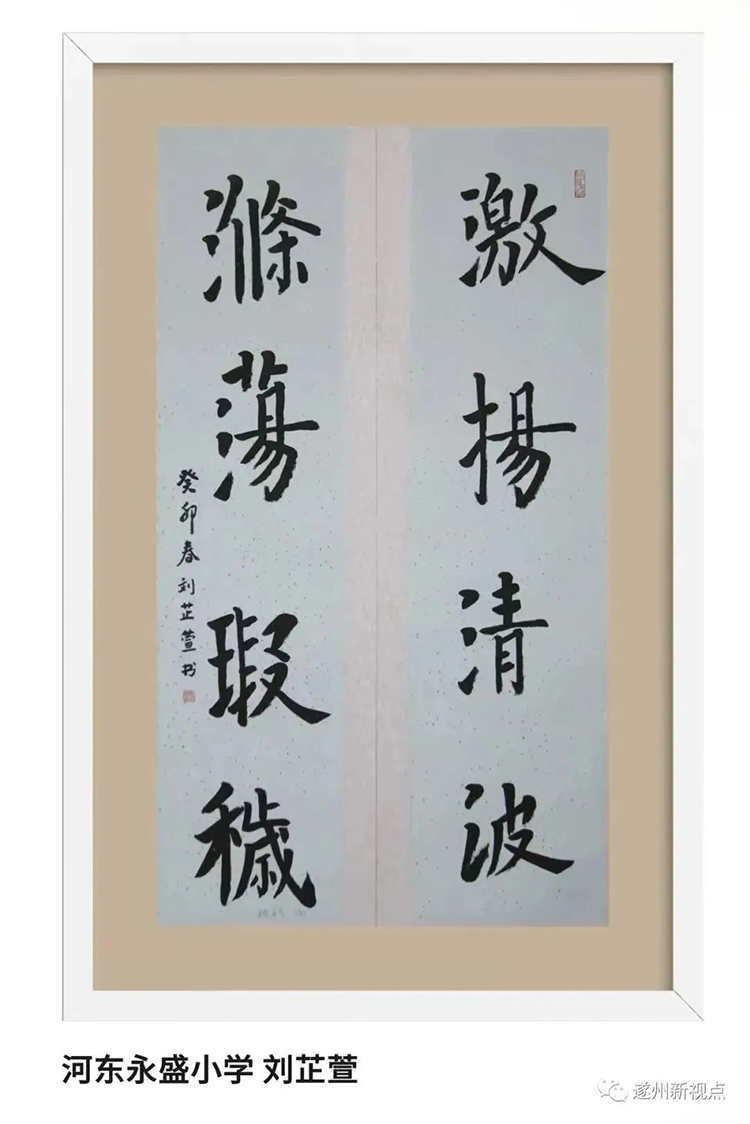 激揚清波
滌蕩瑕穢
癸卯春刘芷萱书
河东永盛小学 刘芷萱
遂州新视点